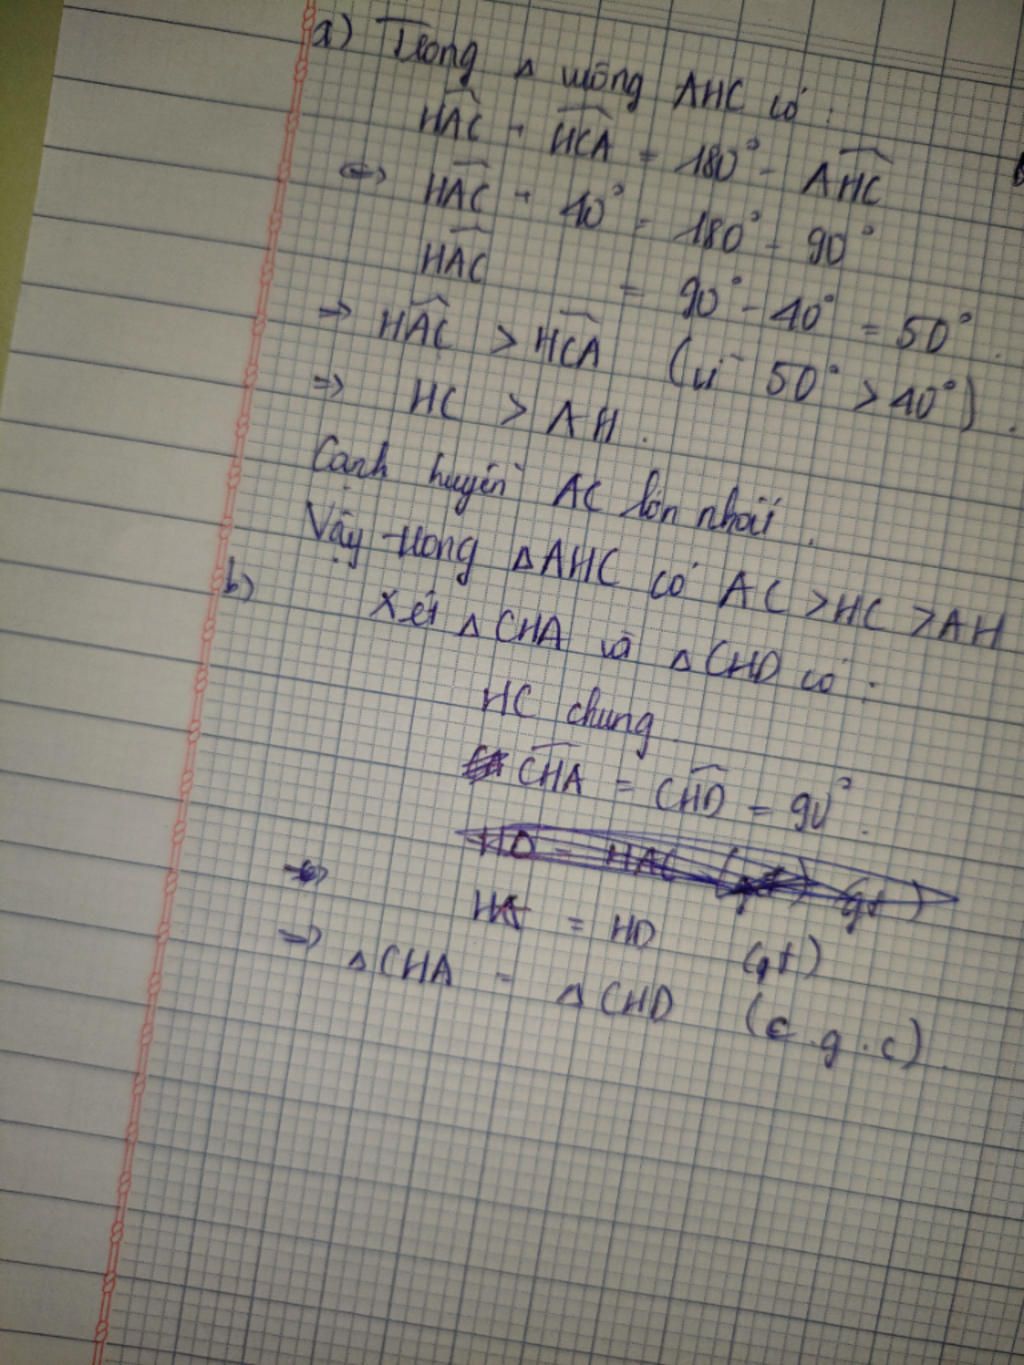 a) Trong Δ vuông AHC có :
HAC + HCA = 180° - AHC
<=> HAC + 40° = 180° - 90°
HAC = 90° - 40° = 50° .
=> HAC > HCA (vì 50° > 40°) .
=> HC > AH .
Cạnh huyền AC lớn nhất .
Vậy trong Δ AHC có AC > HC > AH
b) Xét Δ CHA và Δ CHD có :
HC chung
CHA = CHD = 90° .
HA = HD (gt)
=> Δ CHA = Δ CHD (c.g.c) .